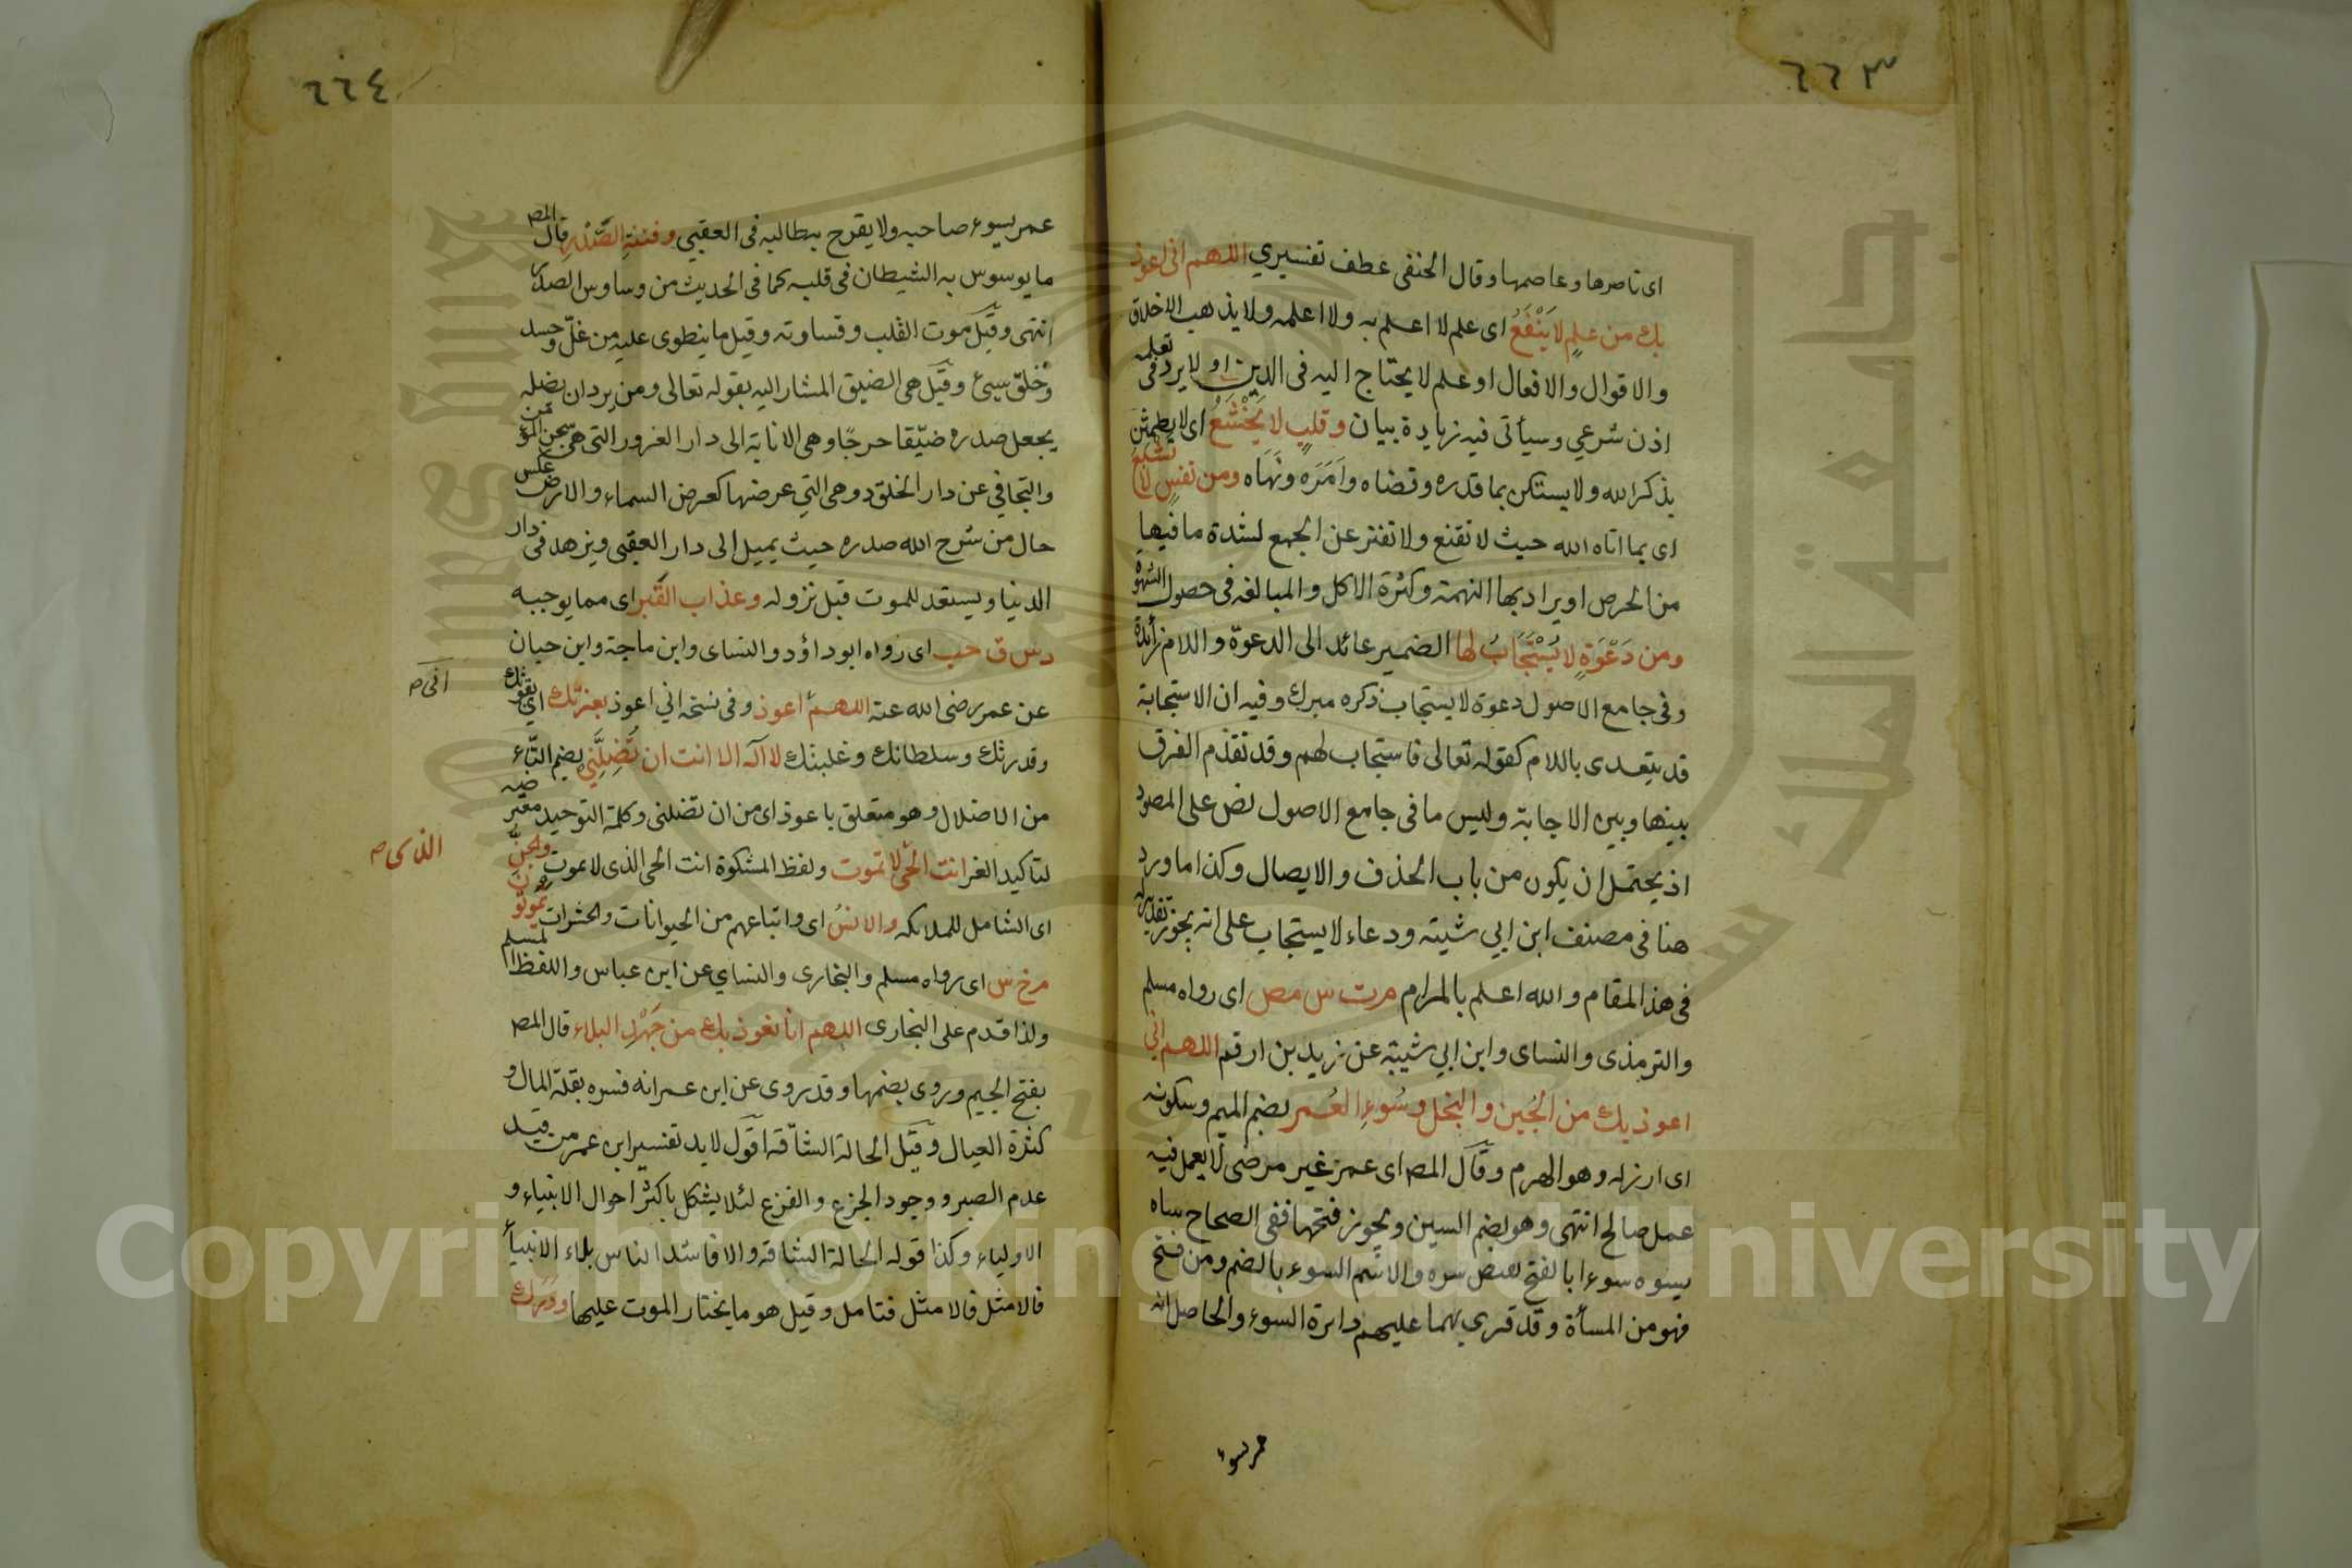 ٦٦٣
اى ناصرها وعاصمها وقال الحنفى عطف تفسيري اللهم انى اعوذ
بك من علمٍ لا يَنْفَعُ اى علم لا اعلم به ولا اعلمه ولا يذهب الاخلاق
والاقوال والافعال او علم لا يحتاج اليه فى الدين او لا يرد فى تعلمه
اذن شرعي وسيأتى فيه زيادة بيان وقلبٍ لا يَخْشَعُ اى لا يطمئن
بذكر الله ولا يستكن بما قدره وقضاه وامَرَه ونَهَاه ومن نفسٍ لا تشبع
اى بما اتاه الله حيث لا تقنع ولا تفتر عن الجمع لشدة ما فيها
من الحرص او يراد بها النهمة وكثرة الاكل والمبالغه فى حصول الشهوة
ومن دَعْوَةٍ لا يُسْتَجَابُ لها الضمير عائد الى الدعوة واللام زائدة
وفى جامع الاصول دعوة لا يستجاب ذكره ميرك وفيه ان الاستجابة
قد يتعدى باللام كقوله تعالى فاستجاب لهم وقد تقدم الفرق
بينها وبين الاجابة وليس ما فى جامع الاصول نص على المصود
اذ يحتمل ان يكون من باب الحذف والايصال وكذا ما ورد
هنا فى مصنف ابن ابي شيبته ودعاء لا يستجاب على انه يجوز تقديره
فى هذا المقام والله اعلم بالمرام مرت س مص اى رواه مسلم
والترمذى والنساى وابن ابي شيبة عن زيد بن ارقم اللهم اني
اعوذ بك من الجُبن والبخل وسُوءِ العُمر بضم الميم وسكونه
اى ارزله وهو الهرم وقال المص اى عمر غير مرضى لا يعمل فيه
عمل صالح انتهى وهو بضم السين ويجوز فتحها ففى الصحاح ساه
يسوه سوءا بالفتح نقيض سره والاسم السوء بالضم ومن فتح
فهو من المسأة وقد قرى بهما عليهم دايرة السوء والحاصل انه
عمر سوء
٦٦٤
عمر يسوء صاحبه ولا يفرح بطالبه فى العقبى وفتنةِ الصَّدْرِ قال المص
ما يوسوس به الشيطان فى قلبه كما فى الحديث من وساوس الصدر
انتهى وقيل موت القلب وقساوته وقيل ما ينطوى عليه من غلّ وحسد
وخلق سيئ وقيل هى الضيق المشار اليه بقوله تعالى ومن يرد ان يضله
يجعل صدره ضيّقا حرجًا وهى الانابة الى دار الغرور التى هى سجن المؤمن
والتجافي عن دار الخلود وهى التي عرضها كعرض السماء والارض عكس
حال من شرح الله صدره حيث يميل الى دار العقبى ويزهد فى دار
الدنيا ويستعد للموت قبل نزوله وعذاب القبر اى مما يوجبه
د س ق حب اى رواه ابو داؤد والنساى وابن ماجة وابن حبان
عن عمر رضى الله عنه اللهم اعوذ وفى نسخه اني اعوذ بعزتك اى بقوتك
انى ص
وقدرتك وسلطانك وغلبتك لا آله الا انت ان تُضِلَّنِي بضم التاء
من الاضلال وهو متعلق باعوذ اى من ان تضلنى وكلمة التوحيد معترضه
لتاكيد الغر انت الحَي لا تموت ولفظ المشكوة انت الحى الذى لا يموت والجنّ
الذى ص
اى الشامل للملائكه والانسُ اى واتباعهم من الحيوانات والحشرات يموتون
م خ س اى رواه مسلم والبخارى والنساي عن ابن عباس واللفظ لمسلم
ولذا قدم على البخارى اللهم انا نعوذ بك من جَهْدِ البلاء قال المص
بفتح الجيم وروى بضمها وقد روى عن ابن عمر انه فسره بقلة المال و
كثرة العيال وقيل الحالة الشاقه اقول لابد تفسير ابن عمر من قيد
عدم الصبر ووجود الجزع والفزع لئلا يشكل باكثر احوال الانبياء و
الاولياء وكذا قوله الحالة الشاقه والا فاشد الناس بلاء الانبيأ
فالامثل فالامثل فتامل وقيل هو ما يختار الموت عليها ودَرَك
Copyright © King Saud University
جامعة الملك سعود